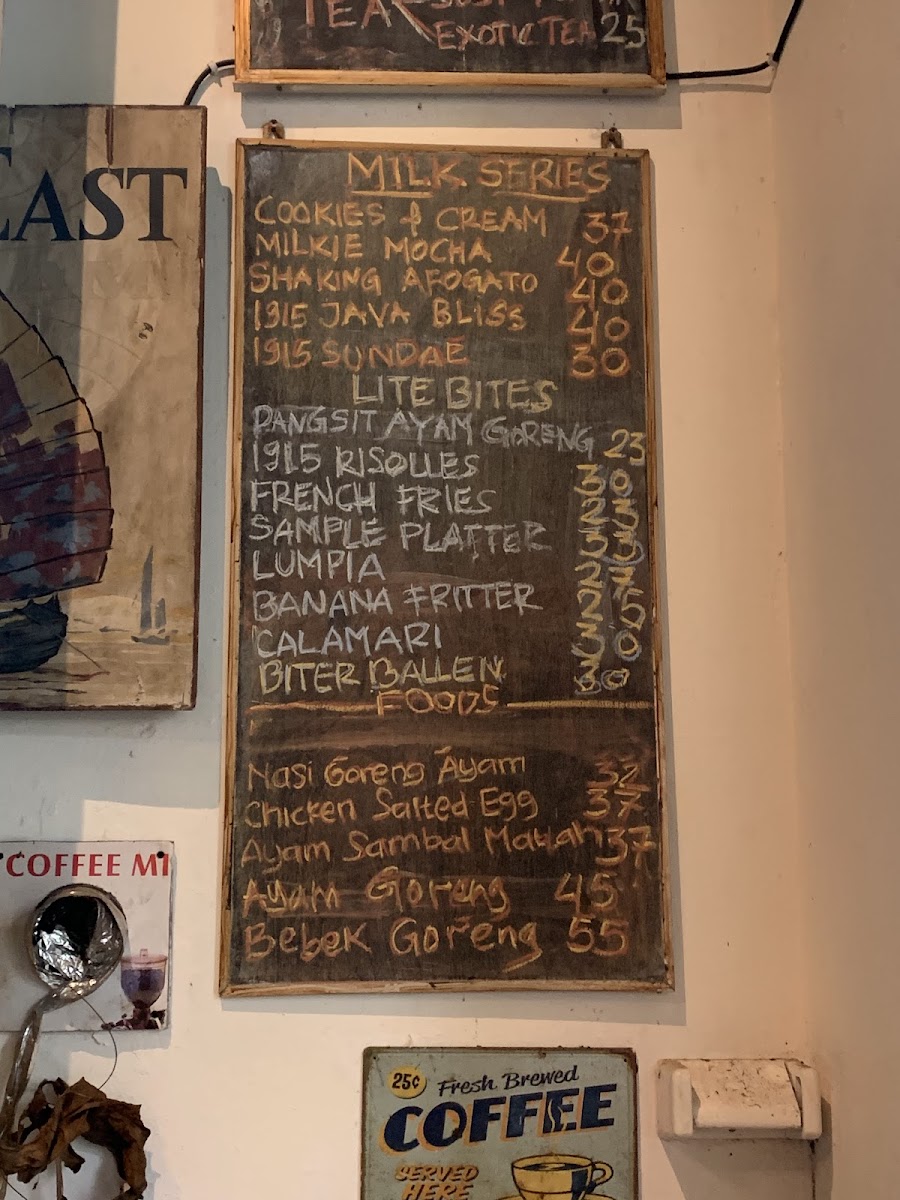 TEA
EXOTIC TEA 25
MILK SERIES
COOKIES & CREAM 37
MILKIE MOCHA 40
SHAKING AFOGATO 40
1915 JAVA BLISS 40
1915 SUNDAE 30
LITE BITES
PANGSIT AYAM GORENG 23
1915 RISOLLES 30
FRENCH FRIES 23
SAMPLE PLATTER 33
LUMPIA 27
BANANA FRITTER 25
CALAMARI 30
BITER BALLEN 30
FOODS
Nasi Goreng Ayam 32
Chicken Salted Egg 37
Ayam Sambal Matah 37
Ayam Goreng 45
Bebek Goreng 55
EAST
COFFEE MI
25¢ Fresh Brewed
COFFEE
SERVED
HERE